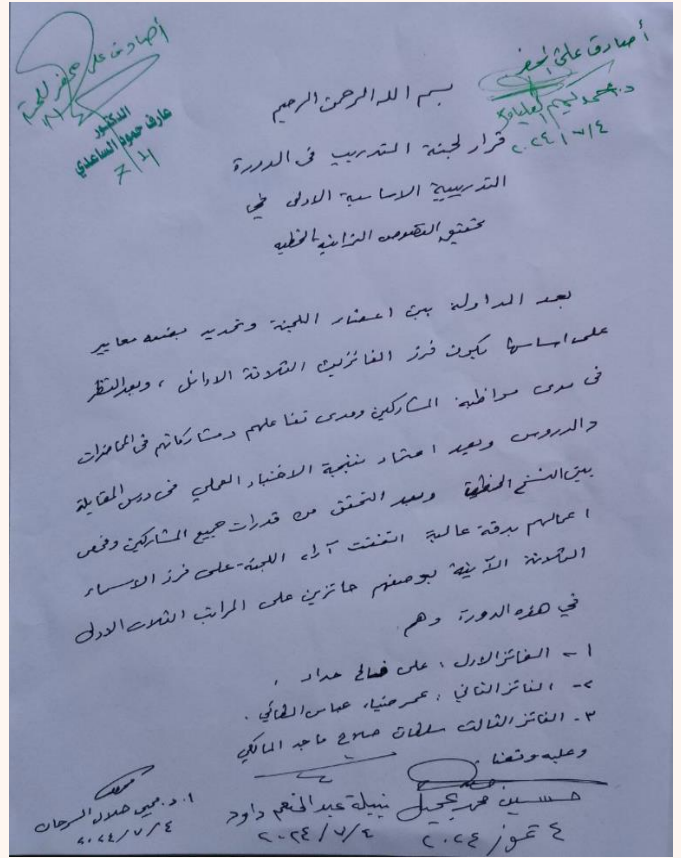 أصادق على المحضر
د. محمد كريم
٢٠٢٤/٧/٤
أصادق على محضر اللجنة
الدكتور
عارف حمود الساعدي
٧/٤
بسم الله الرحمن الرحيم
قرار لجنة التدريب في الدورة
التدريبية الاساسية الاولى في
تحقيق النصوص التراثية الخطية
بعد المداولة بين اعضاء اللجنة وتحديد بضعة معايير
على اساسها يكون فرز الفائزين الثلاثة الاوائل ، وبعد النظر
في مدى مواظبة المشاركين ومدى تفاعلهم ومشاركاتهم في المحاضرات
والدروس وبعد اعتماد نتيجة الاختبار العملي في درس المقابلة
بين النسخ الخطية وبعد التحقق من قدرات جميع المشاركين وفحص
اعمالهم بدقة عالية اتفقت آراء اللجنة على فرز الاسماء
الثلاثة الآتية بوصفهم حائزين على المراتب الثلاث الاولى
في هذه الدورة وهم
١- الفائز الاول : علي صالح حداد .
٢- الفائز الثاني : عمر ضياء عباس الطائي .
٣- الفائز الثالث سلطان صلاح ماجد المالكي
وعليه وقعنا .
حسين محمد عجيل
٤ تموز ٢٠٢٤
نبيلة عبد المنعم داود
٢٠٢٤/٧/٤
ا.د. محيي هلال السرحان
٢٠٢٤/٧/٤